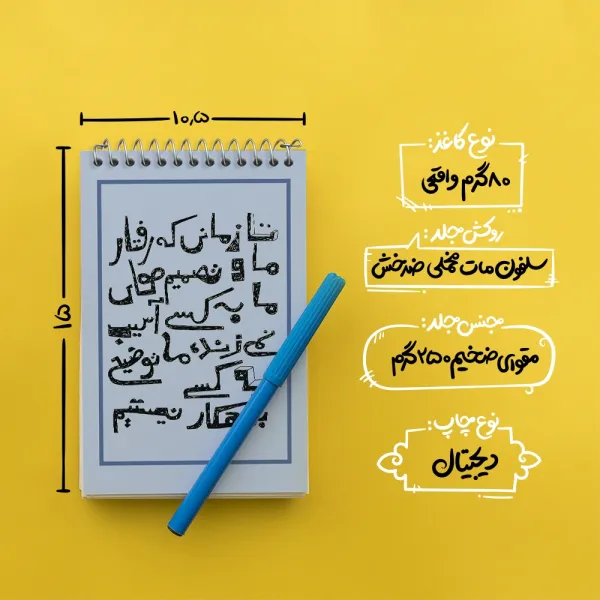 ۱۰٫۵
۱۵
تا زمانی که رفتار
ما و تصمیم های
ما به کسی آسیب
نمی زند، ما توضیحی
به کسی
بدهکار نیستیم
نوع کاغذ:
۸۰ گرم واقعی
روکش جلد:
سلفون مات مخملی ضدخش
جنس جلد:
مقوای ضخیم ۲۵۰ گرم
نوع چاپ:
دیجیتال